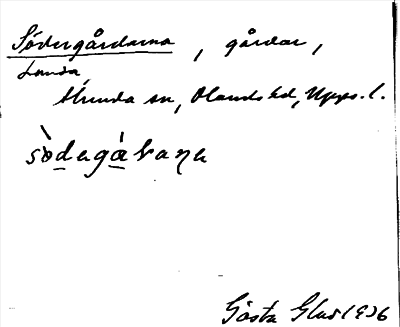 Södergårdarna, gårdar,
Lunda,
Alunda sn, Olands hd, Upps. l.
sò̱dagá̱raṇa
Gösta Glas 1936